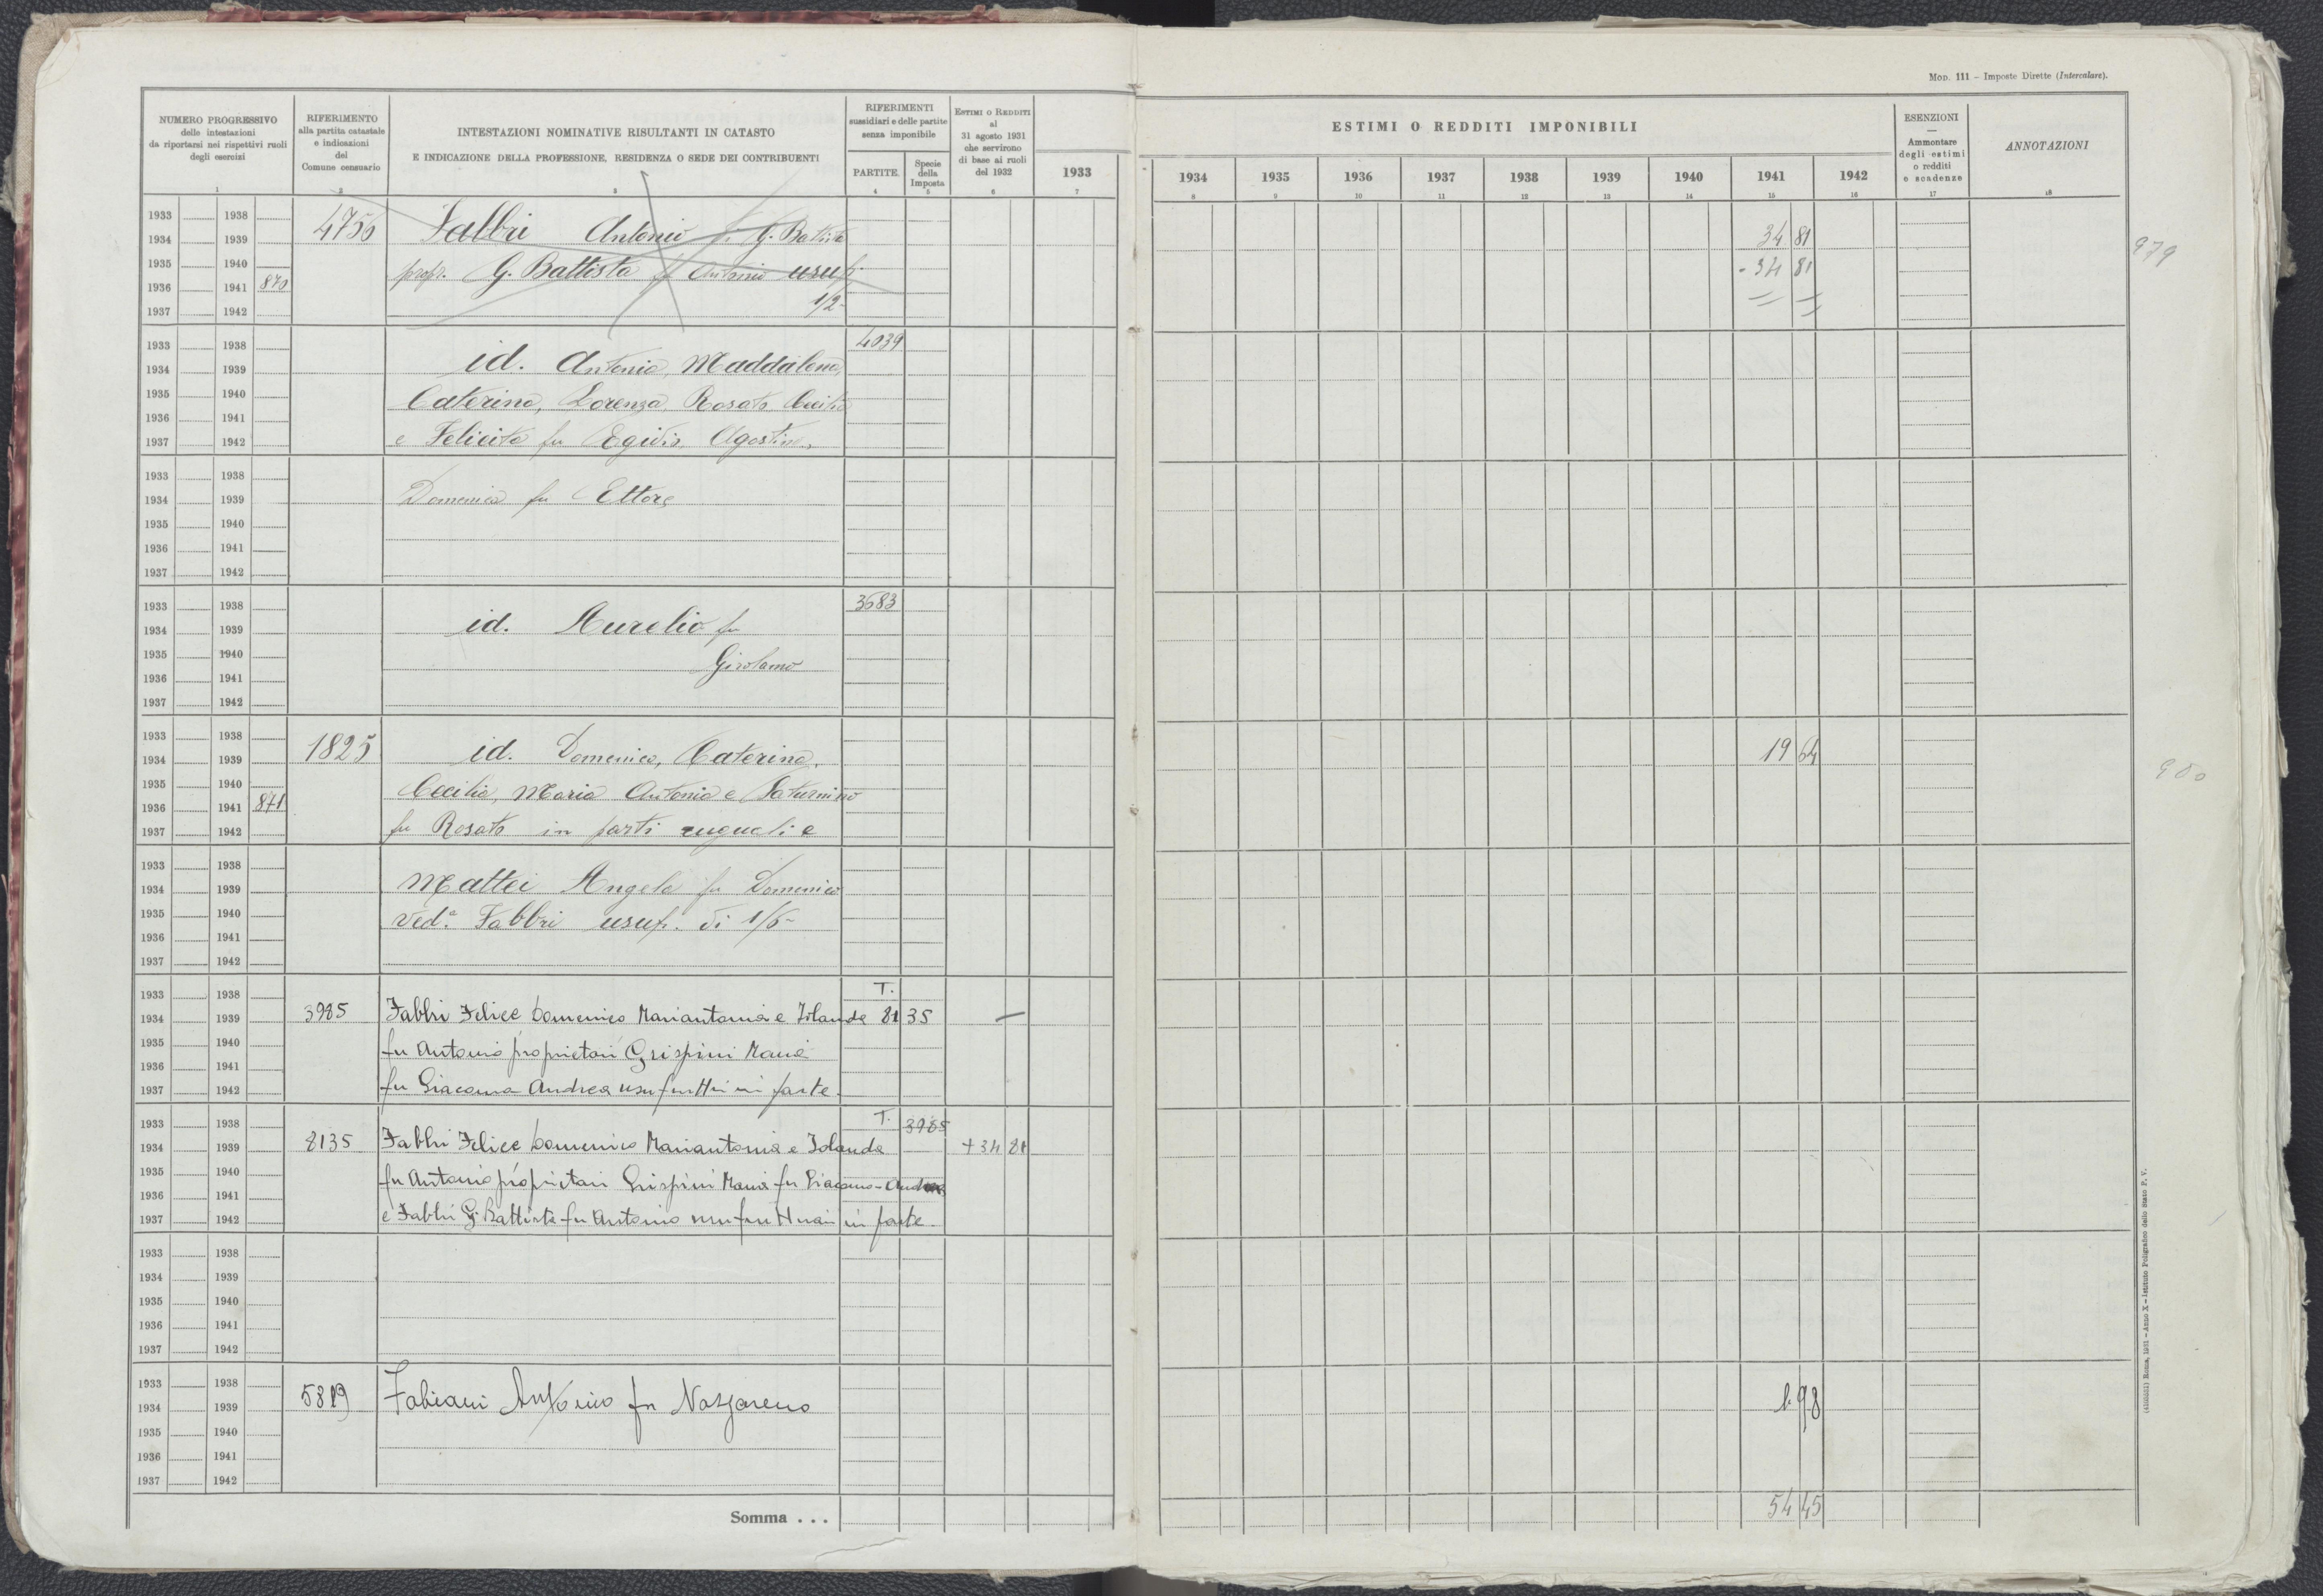 MOD. 111 - Imposte Dirette (Intercalare).
NUMERO PROGRESSIVO
delle intestazioni
da riportarsi nei rispettivi ruoli
degli esercizi
1
RIFERIMENTO
alla partita catastale
e indicazioni
del
Comune censuario
2
INTESTAZIONI NOMINATIVE RISULTANTI IN CATASTO
E INDICAZIONE DELLA PROFESSIONE, RESIDENZA O SEDE DEI CONTRIBUENTI
3
RIFERIMENTI
sussidiari e delle partite
senza imponibile
PARTITE
4
Specie
della
Imposta
5
ESTIMI O REDDITI
al
31 agosto 1931
che servirono
di base ai ruoli
del 1932
6
1933
7
ESTIMI O REDDITI IMPONIBILI
1934 1935 1936 1937 1938 1939 1940 1941 1942
8 9 10 11 12 13 14 15 16
ESENZIONI
—
Ammontare
degli estimi
o redditi
e scadenze
17
ANNOTAZIONI
18
1933 1938
1934 1939 4756 Fabbri Antonio f. G. Battista 34 81 979
1935 1940 propr. G. Battista f. Antonio usuf. - 34 81
1936 1941 870 1/2 = =
1937 1942
1933 1938 4039
1934 1939 id. Antonio, Maddalena,
1935 1940 Caterina, Lorenza, Rosato, Cecilia
1936 1941
1937 1942 e Felicita fu Egidio, Agostino,
1933 1938
1934 1939 Domenico fu Ettore
1935 1940
1936 1941
1937 1942
1933 1938 3683
1934 1939 id. Aurelio fu
1935 1940 Girolamo
1936 1941
1937 1942
1933 1938
1934 1939 1825 id. Domenico, Caterina, 19 64
1935 1940 Cecilia, Maria Antonia e Saturnino
1936 1941 871
1937 1942 fu Rosato in parti uguali e
1933 1938
1934 1939 Mattei Angela fu Domenico
1935 1940 ved.a Fabbri usuf. di 1/6
1936 1941
1937 1942
1933 1938 T.
1934 1939 3985 Fabbri Felice Domenico Mariantonia e Iolanda 81 35 —
1935 1940 fu Antonio proprietari Grispini Maria
1936 1941
1937 1942 fu Giacomo Andrea usufrutt in parte.
1933 1938 T. 3985
1934 1939 8135 Fabbri Felice Domenico Mariantonia e Iolanda + 34 81
1935 1940 fu Antonio proprietari Grispini Maria fu Giacomo-Andrea
1936 1941
1937 1942 e Fabbri G. Battista fu Antonio usufruttuari in parte.
1933 1938
1934 1939
1935 1940
1936 1941
1937 1942
1933 1938
1934 1939 5819 Fabiani Antonio fu Nazzareno 98
1935 1940
1936 1941
1937 1942
Somma . . . 54 45
Roma, 1931 - Anno X - Istituto Poligrafico dello Stato P. V.